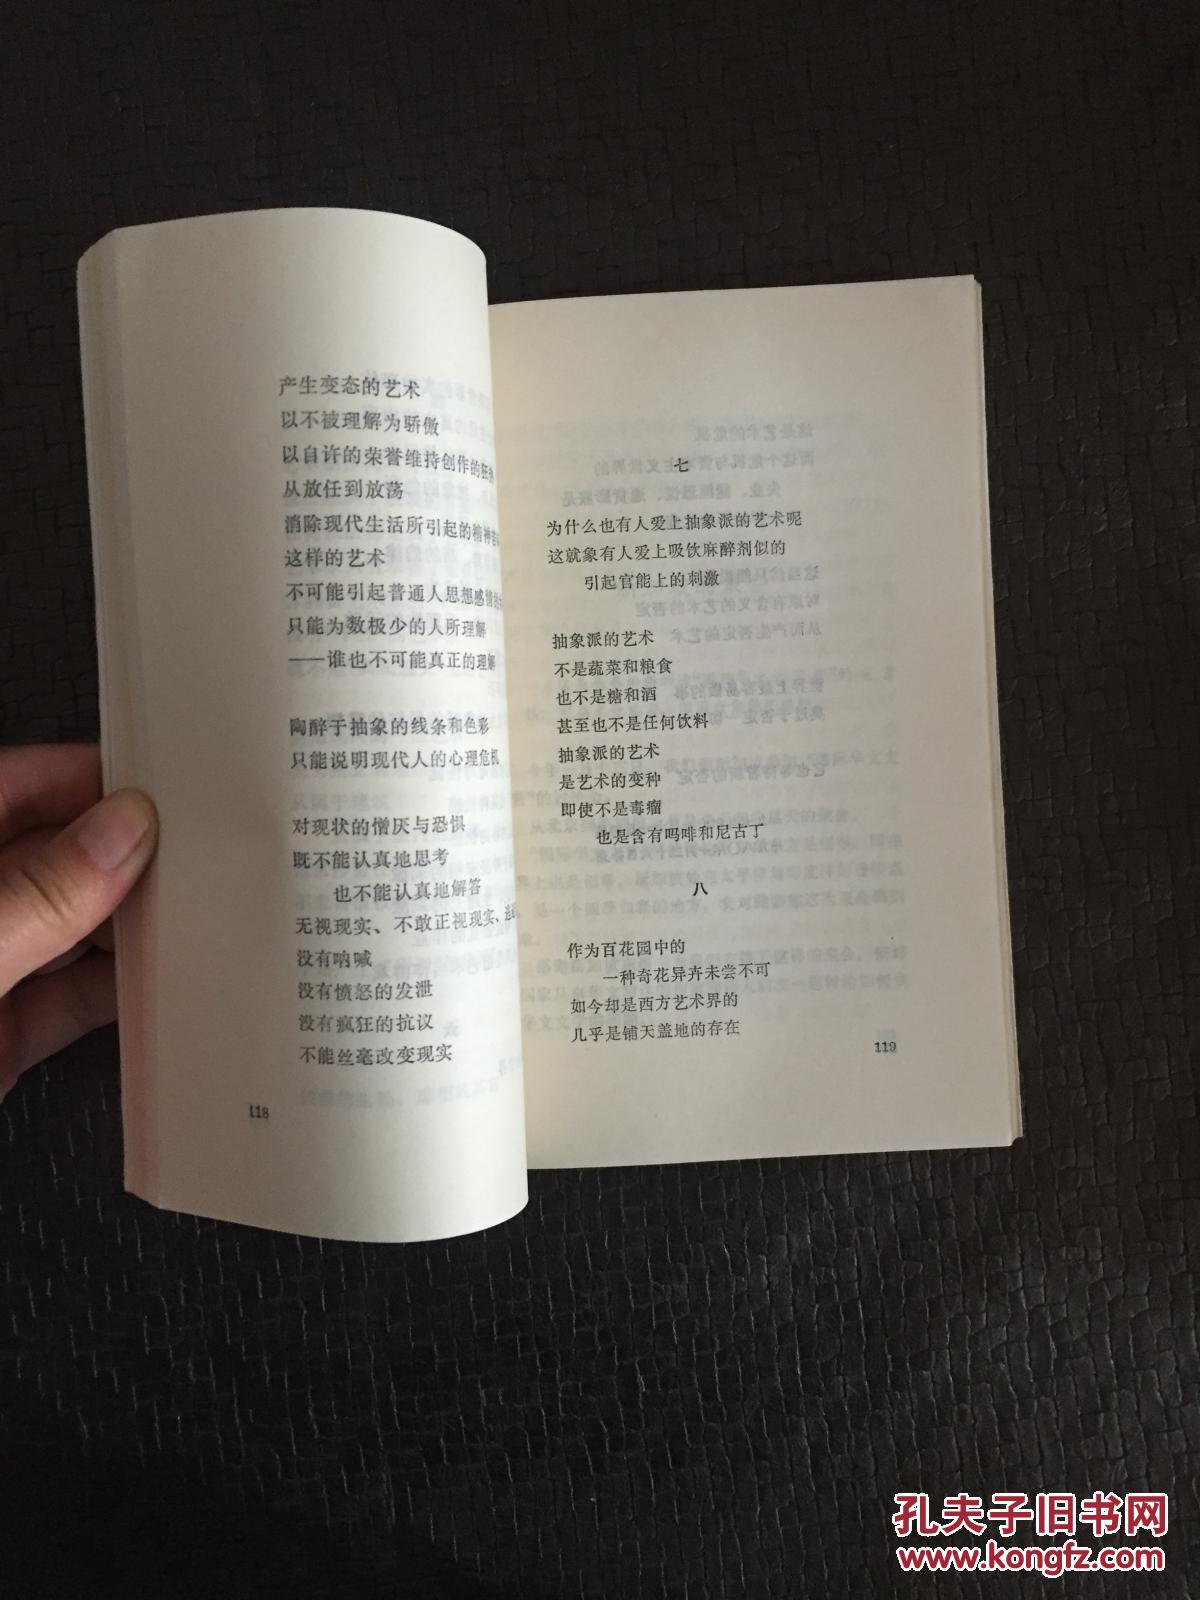 产生变态的艺术
以不被理解为骄傲
以自许的荣誉维持创作的狂
从放任到放荡
消除现代生活所引起的精神
这样的艺术
不可能引起普通人思想感情
只能为数极少的人所理解
——谁也不可能真正的理解
陶醉于抽象的线条和色彩
只能说明现代人的心理危机
对现状的憎厌与恐惧
既不能认真地思考
也不能认真地解答
无视现实、不敢正视现实、
没有呐喊
没有愤怒的发泄
没有疯狂的抗议
不能丝毫改变现实
118
七
为什么也有人爱上抽象派的艺术呢
这就象有人爱上吸饮麻醉剂似的
引起官能上的刺激
抽象派的艺术
不是蔬菜和粮食
也不是糖和酒
甚至也不是任何饮料
抽象派的艺术
是艺术的变种
即使不是毒瘤
也是含有吗啡和尼古丁
八
作为百花园中的
一种奇花异卉未尝不可
如今却是西方艺术界的
几乎是铺天盖地的存在
119
孔夫子旧书网
www.kongfz.com